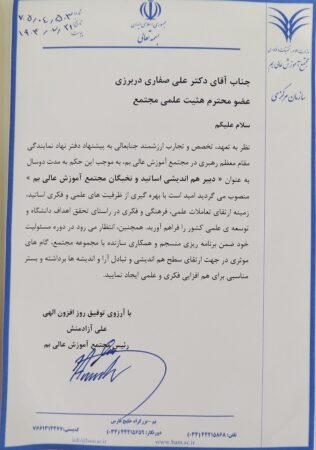 جمهوری اسلامی ایران
بسمه تعالی
شماره:
تاریخ:
پیوست:
وزارت علوم، تحقیقات و فناوری
مجتمع آموزش عالی بم
سازمان مرکزی
جناب آقای دکتر علی صفاری دربرزی
عضو محترم هئیت علمی مجتمع
سلام علیکم
نظر به تعهد، تخصص و تجارب ارزشمند جنابعالی به پیشنهاد دفتر نهاد نمایندگی
مقام معظم رهبری در مجتمع آموزش عالی بم، به موجب این حکم به مدت دوسال
به عنوان « دبیر هم اندیشی اساتید و نخبگان مجتمع آموزش عالی بم »
منصوب می گردید امید است با بهره گیری از ظرفیت های علمی و فکری اساتید،
زمینه ارتقای تعاملات علمی، فرهنگی و فکری در راستای تحقق اهداف دانشگاه و
توسعه ی علمی کشور را فراهم آورید. همچنین، انتظار می رود در دوره مسئولیت
خود ضمن برنامه ریزی منسجم و همکاری سازنده با مجموعه مجتمع، گام های
موثری در جهت ارتقای سطح هم اندیشی و تبادل آرا و اندیشه ها برداشته و بستر
مناسبی برای هم افزایی فکری و علمی ایجاد نمایید.
با آرزوی توفیق روز افزون الهی
علی آزادمنش
رئیس مجتمع آموزش عالی بم
بم - بزرگراه خلیج فارس
تلفن: ۴۴۲۱۵۸۶۸ (۰۳۴) دورنگار: ۴۴۲۱۵۶۵۹ (۰۳۴) کدپستی:
www.bam.ac.ir info@bam.ac.ir